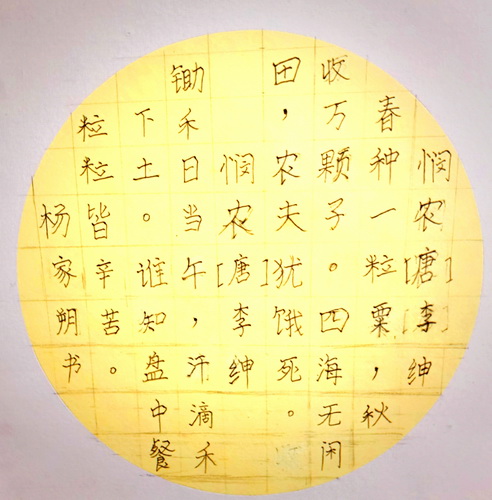 悯农[唐]李绅
春种一粒粟，秋
收万颗子。四海无闲
田，农夫犹饿死。
悯农[唐]李绅
锄禾日当午，汗滴禾
下土。谁知盘中餐
粒粒皆辛苦。
杨家朔书